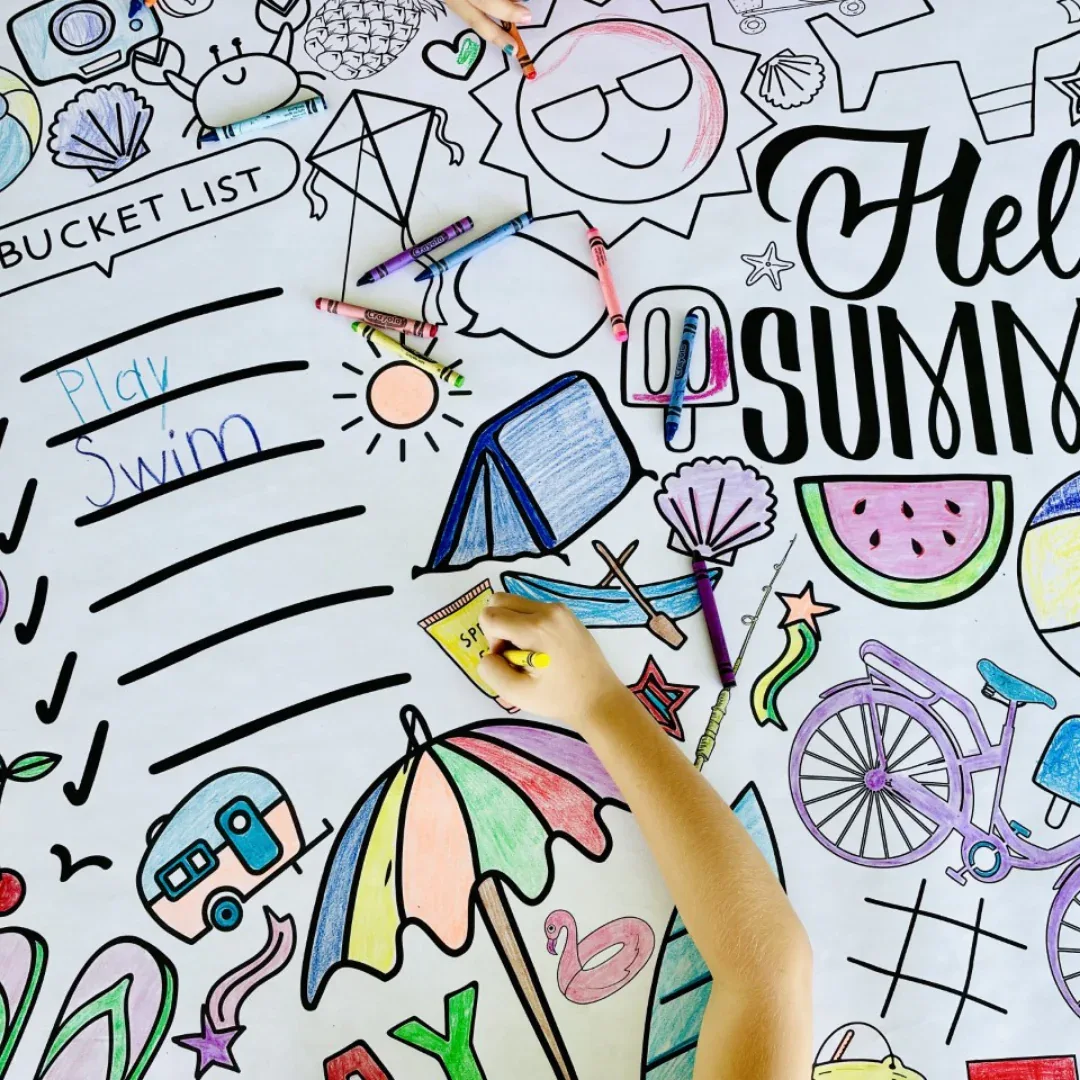 BUCKET LIST
Play
Swim
Hel
SUMM
Crayola
Crayola
SP
AY